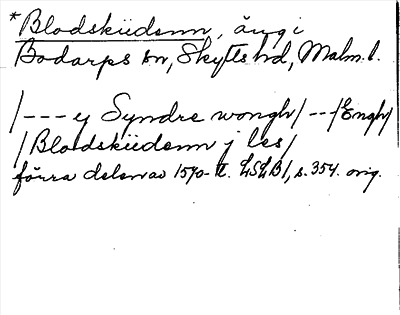 *Blodskiidenn, äng i
Bodarps sn, Skytts hd, Malm. l.
/--- y Syndre wongh/--/Engh/
/Blodskiidenn j les/
förra delen av 1570-t. LSLB1, s. 354. orig.